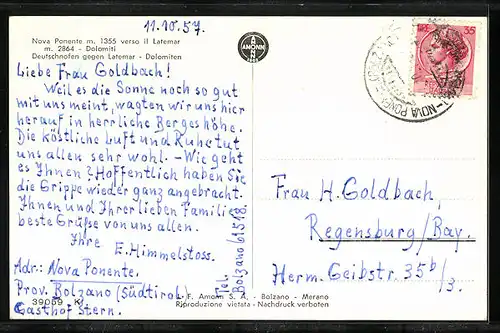 11.10.57.
Nova Ponente m. 1355 verso il Latemar
m. 2864 - Dolomiti
Deutschnofen gegen Latemar - Dolomiten
AMONN
35
NOVA PONENTE
Liebe Frau Goldbach!
Weil es die Sonne noch so gut
mit uns meint, wagten wir uns hier
herauf in herrliche Bergeshöhe.
Die köstliche Luft und Ruhe tut
uns allen sehr wohl. - Wie geht
es Ihnen? Hoffentlich haben Sie
die Grippe wieder ganz angebracht.
Ihnen und Ihrer lieben Familie
beste Grüße von uns allen.
Ihre E. Himmelstoss.
Adr.: Nova Ponente.
Prov. Bolzano (Südtirol)
Gasthof Stern.
Tel:
Bolzano 61518.
Frau H. Goldbach,
Regensburg/Bay.
Herm. Geibstr. 35b/3.
39059 K
F. Amonn S. A. - Bolzano - Merano
Riproduzione vietata - Nachdruck verboten